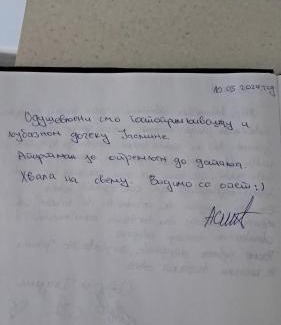 10.05.2024 год
Одушевљени смо гостопримљивошћу и
љубазном дочеку Јасмине.
Апартман је опремљен до детаља.
Хвала на свему. Видимо се опет :)